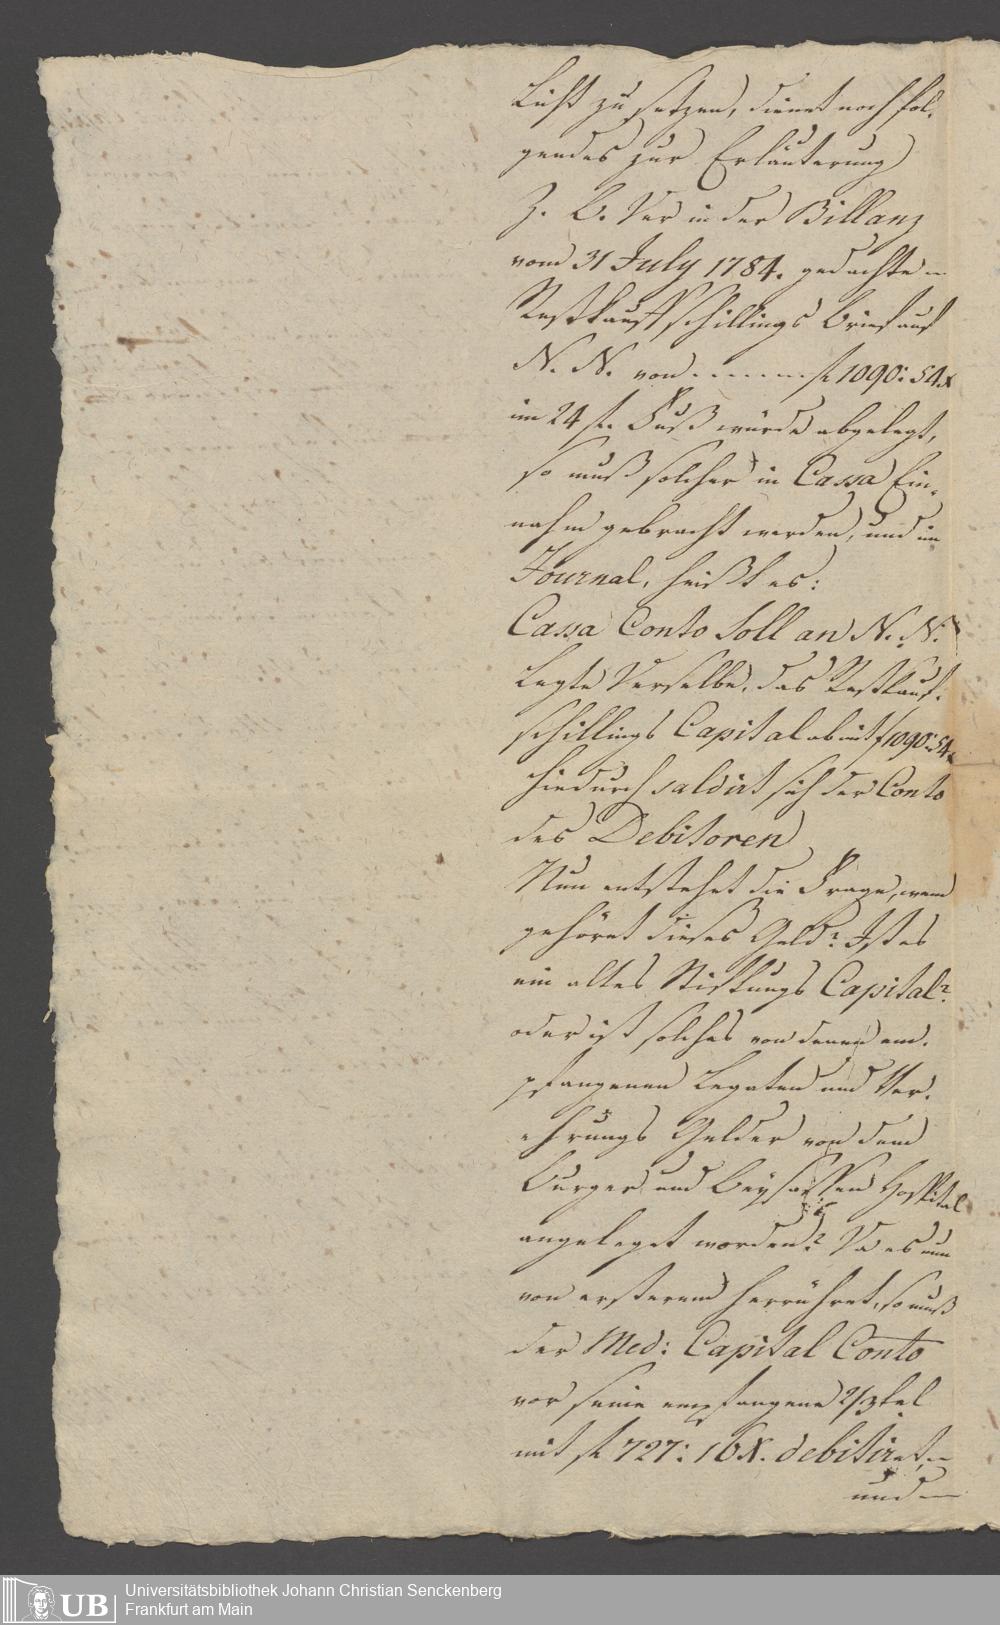 Licht zu setzen, dienet noch fol-
gendes zur Erläuterung
Z. B. Der in der Billanz
vom 31 July 1784. gedachte
Restkaufschillings Brief auf
N. N. von . . . . . . f 1090: 54 x
im 24 f. Fuß würde abgelegt,
so muß solcher in Cassa Ein-
nahm gebracht werden, und im
Journal, heißt es:
Cassa Conto Soll an N. N.
Legte Derselbe, das Restkauf-
schillings Capital ab mit f 1090: 54 x
hiedurch saldirt sich der Conto
des Debitoren
Nun entstehet die Frage, wem
gehöret dieses Geld? Ist es
ein altes Stiftungs Capital?
oder ist solches von denen em-
pfangenen Legaten und Ver-
ehrungs Gelder von dem
Burger und Beysassen Hospital
angeleget worden? Da es nun
von ersterem herrühret, so muß
der Med: Capital Conto
vor seine empfangene 2/3tel
mit f 727: 16 X. debitiret,
und
Universitätsbibliothek Johann Christian Senckenberg
Frankfurt am Main
UB